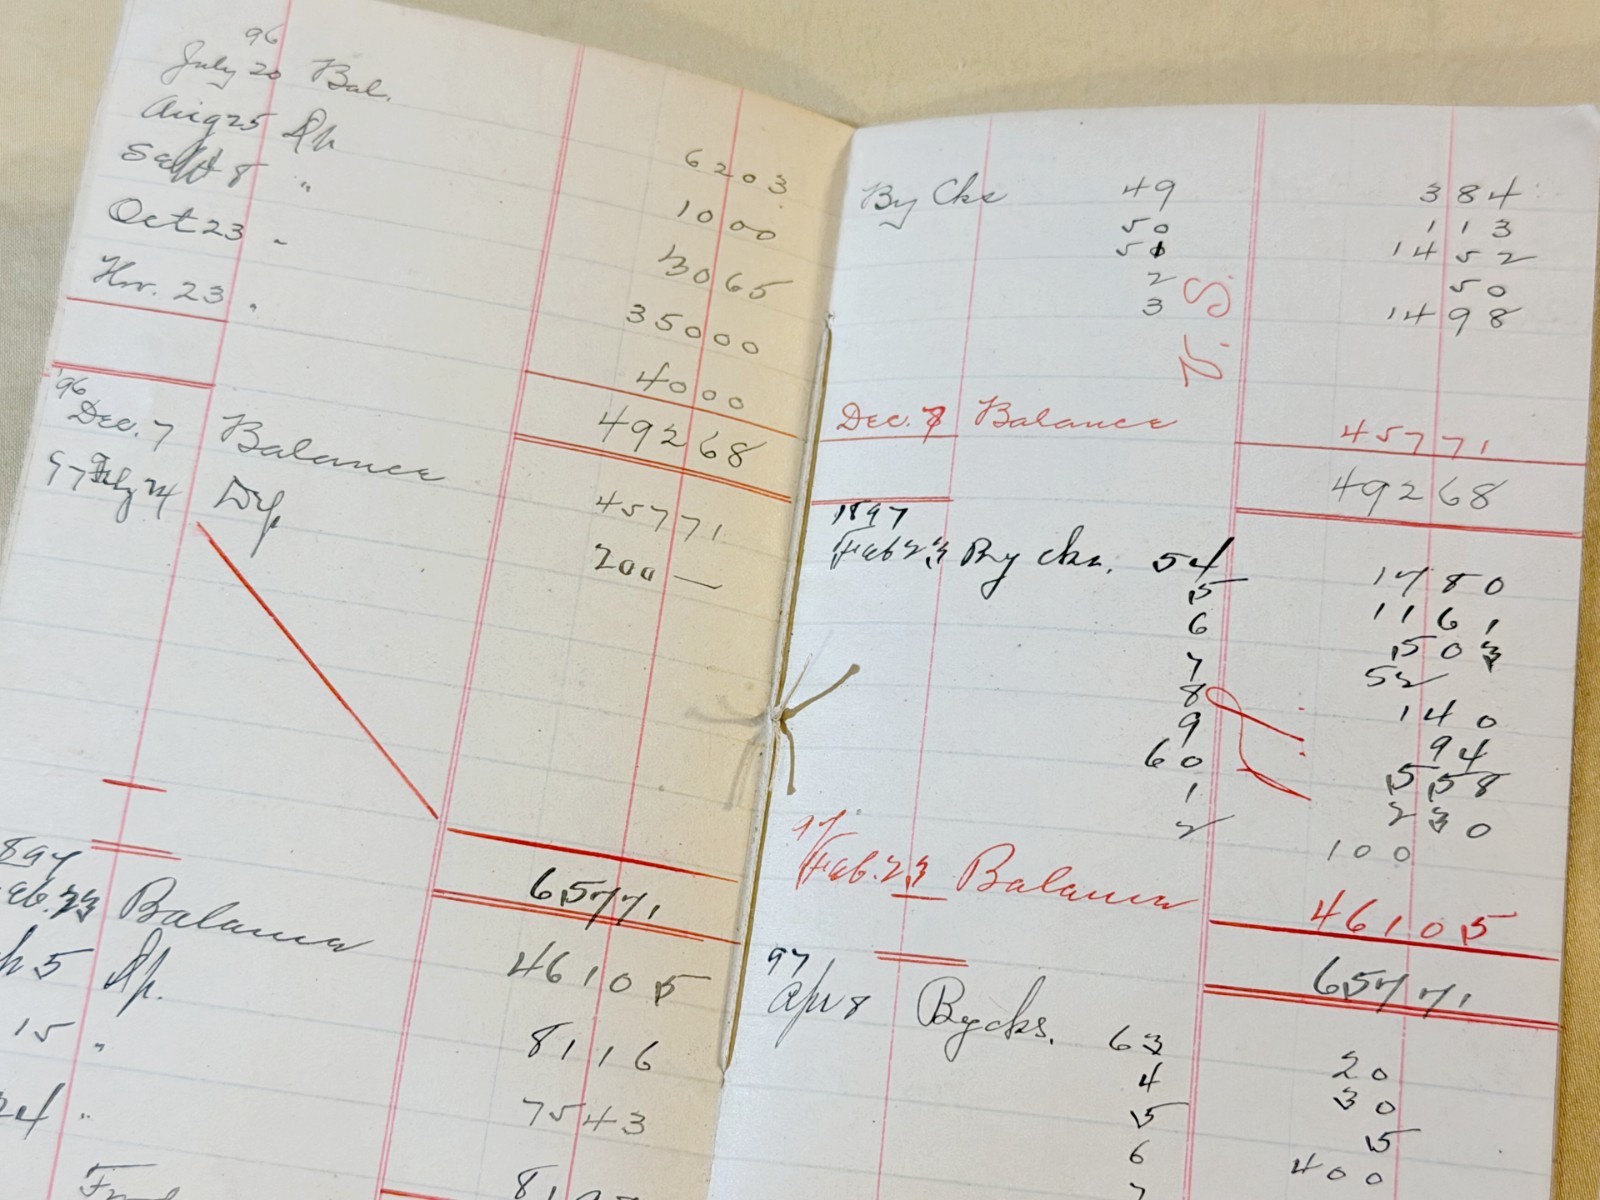 96
July 20 Bal. 6203
Aug 25 Dp 1000
Sept 8 " 3065
Oct 23 " 35000
Nov. 23 " 4000
49268
'96
Dec. 7 Balance 45771
97 Feby 24 Dp. 200 —
65771
1897
Feb. 23 Balance 46105
ch 5 Dp. 8116
15 " 7543
24 "
By Cks 49 384
50 113
51 1452
2 50
3 1498
V. S.
Dec. 7 Balance 45771
49268
1897
Feb 23 By cks. 54 1480
5 1161
6 503
7 52
8 140
9 94
60 558
1 230
2 100
97
Feb. 23 Balance 46105
65771
97
Apr 8 By cks. 63 20
4 30
5 5
6 400
7